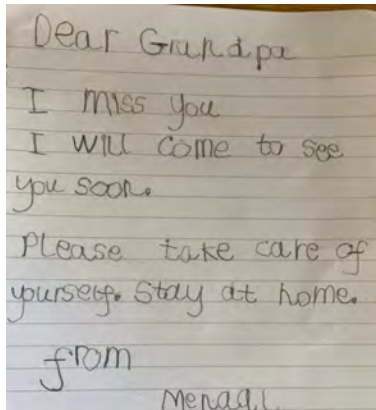 Dear Grandpa
I miss you
I will come to see
you soon.
Please take care of
yourself. Stay at home.
from